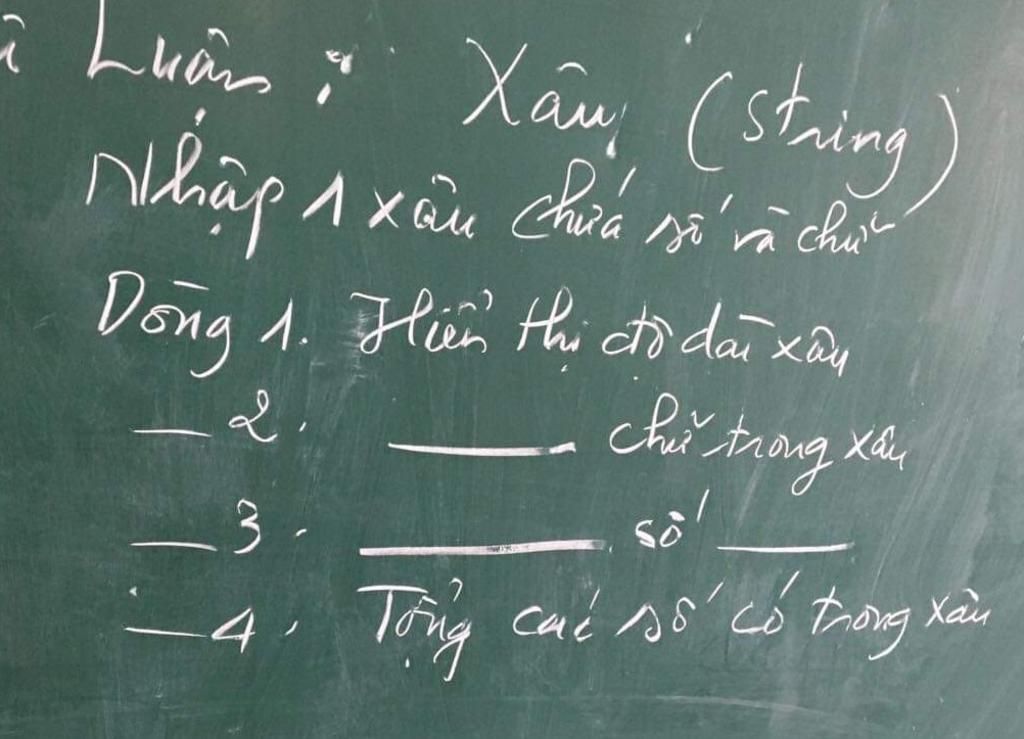 Luận : Xâu (string)
Nhập 1 xâu chứa số và chữ
Dòng 1. Hiển thị độ dài xâu
— 2. — chữ trong xâu
— 3. — số —
— 4. Tổng các số có trong xâu